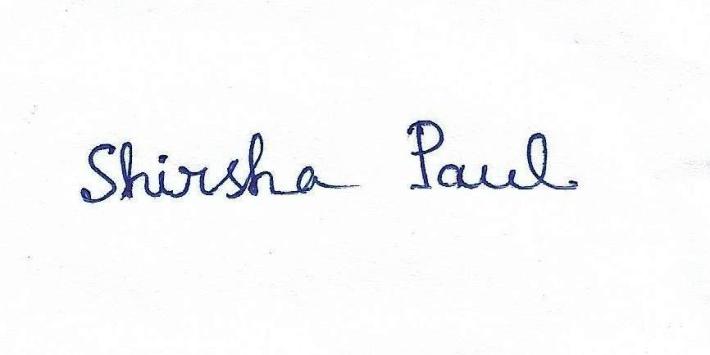 Shirsha Paul